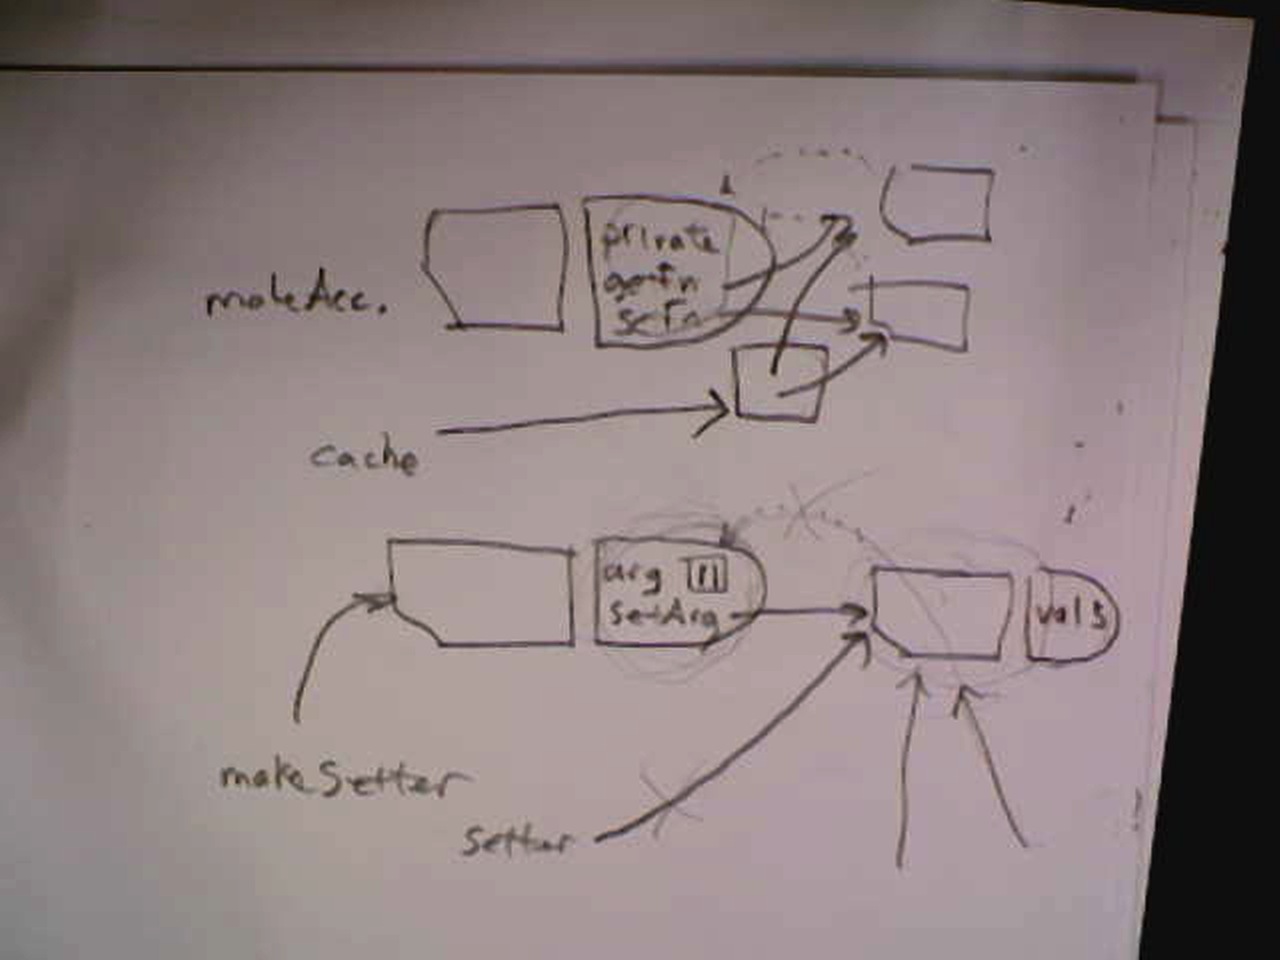 makeAcc.
private
getFn
setFn
cache
arg []
setArg
vals
makeSetter
setter